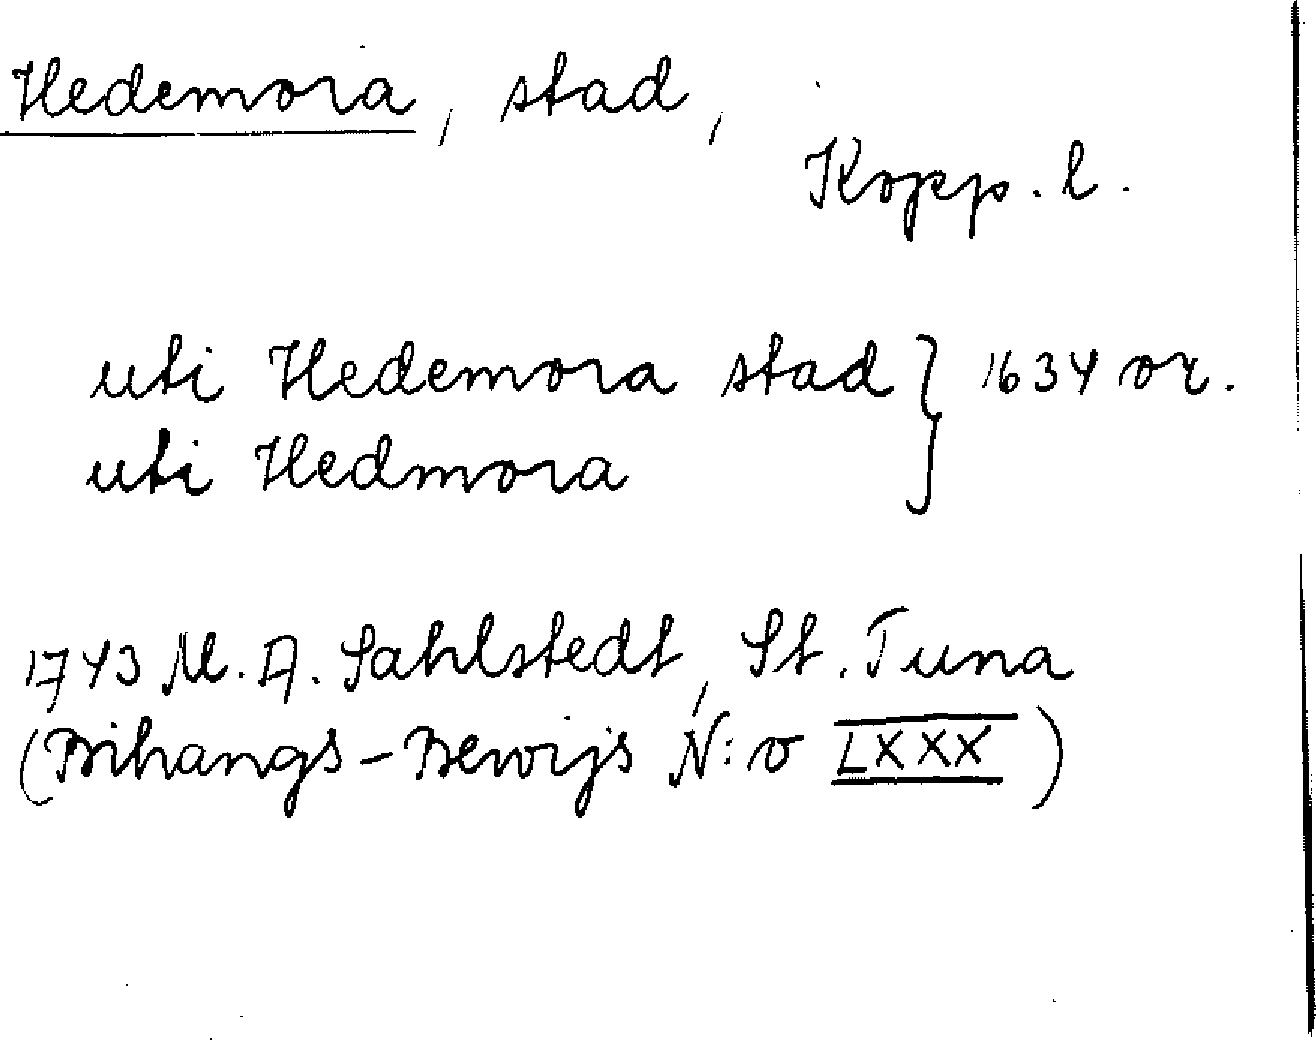 Hedemora, stad,
Kopp. l.
uti Hedemora stad } 1634 or.
uti Hedmora
1743 M. A. Sahlstedt, St. Tuna
(Bihangs-Bewijs N:o LXXX)